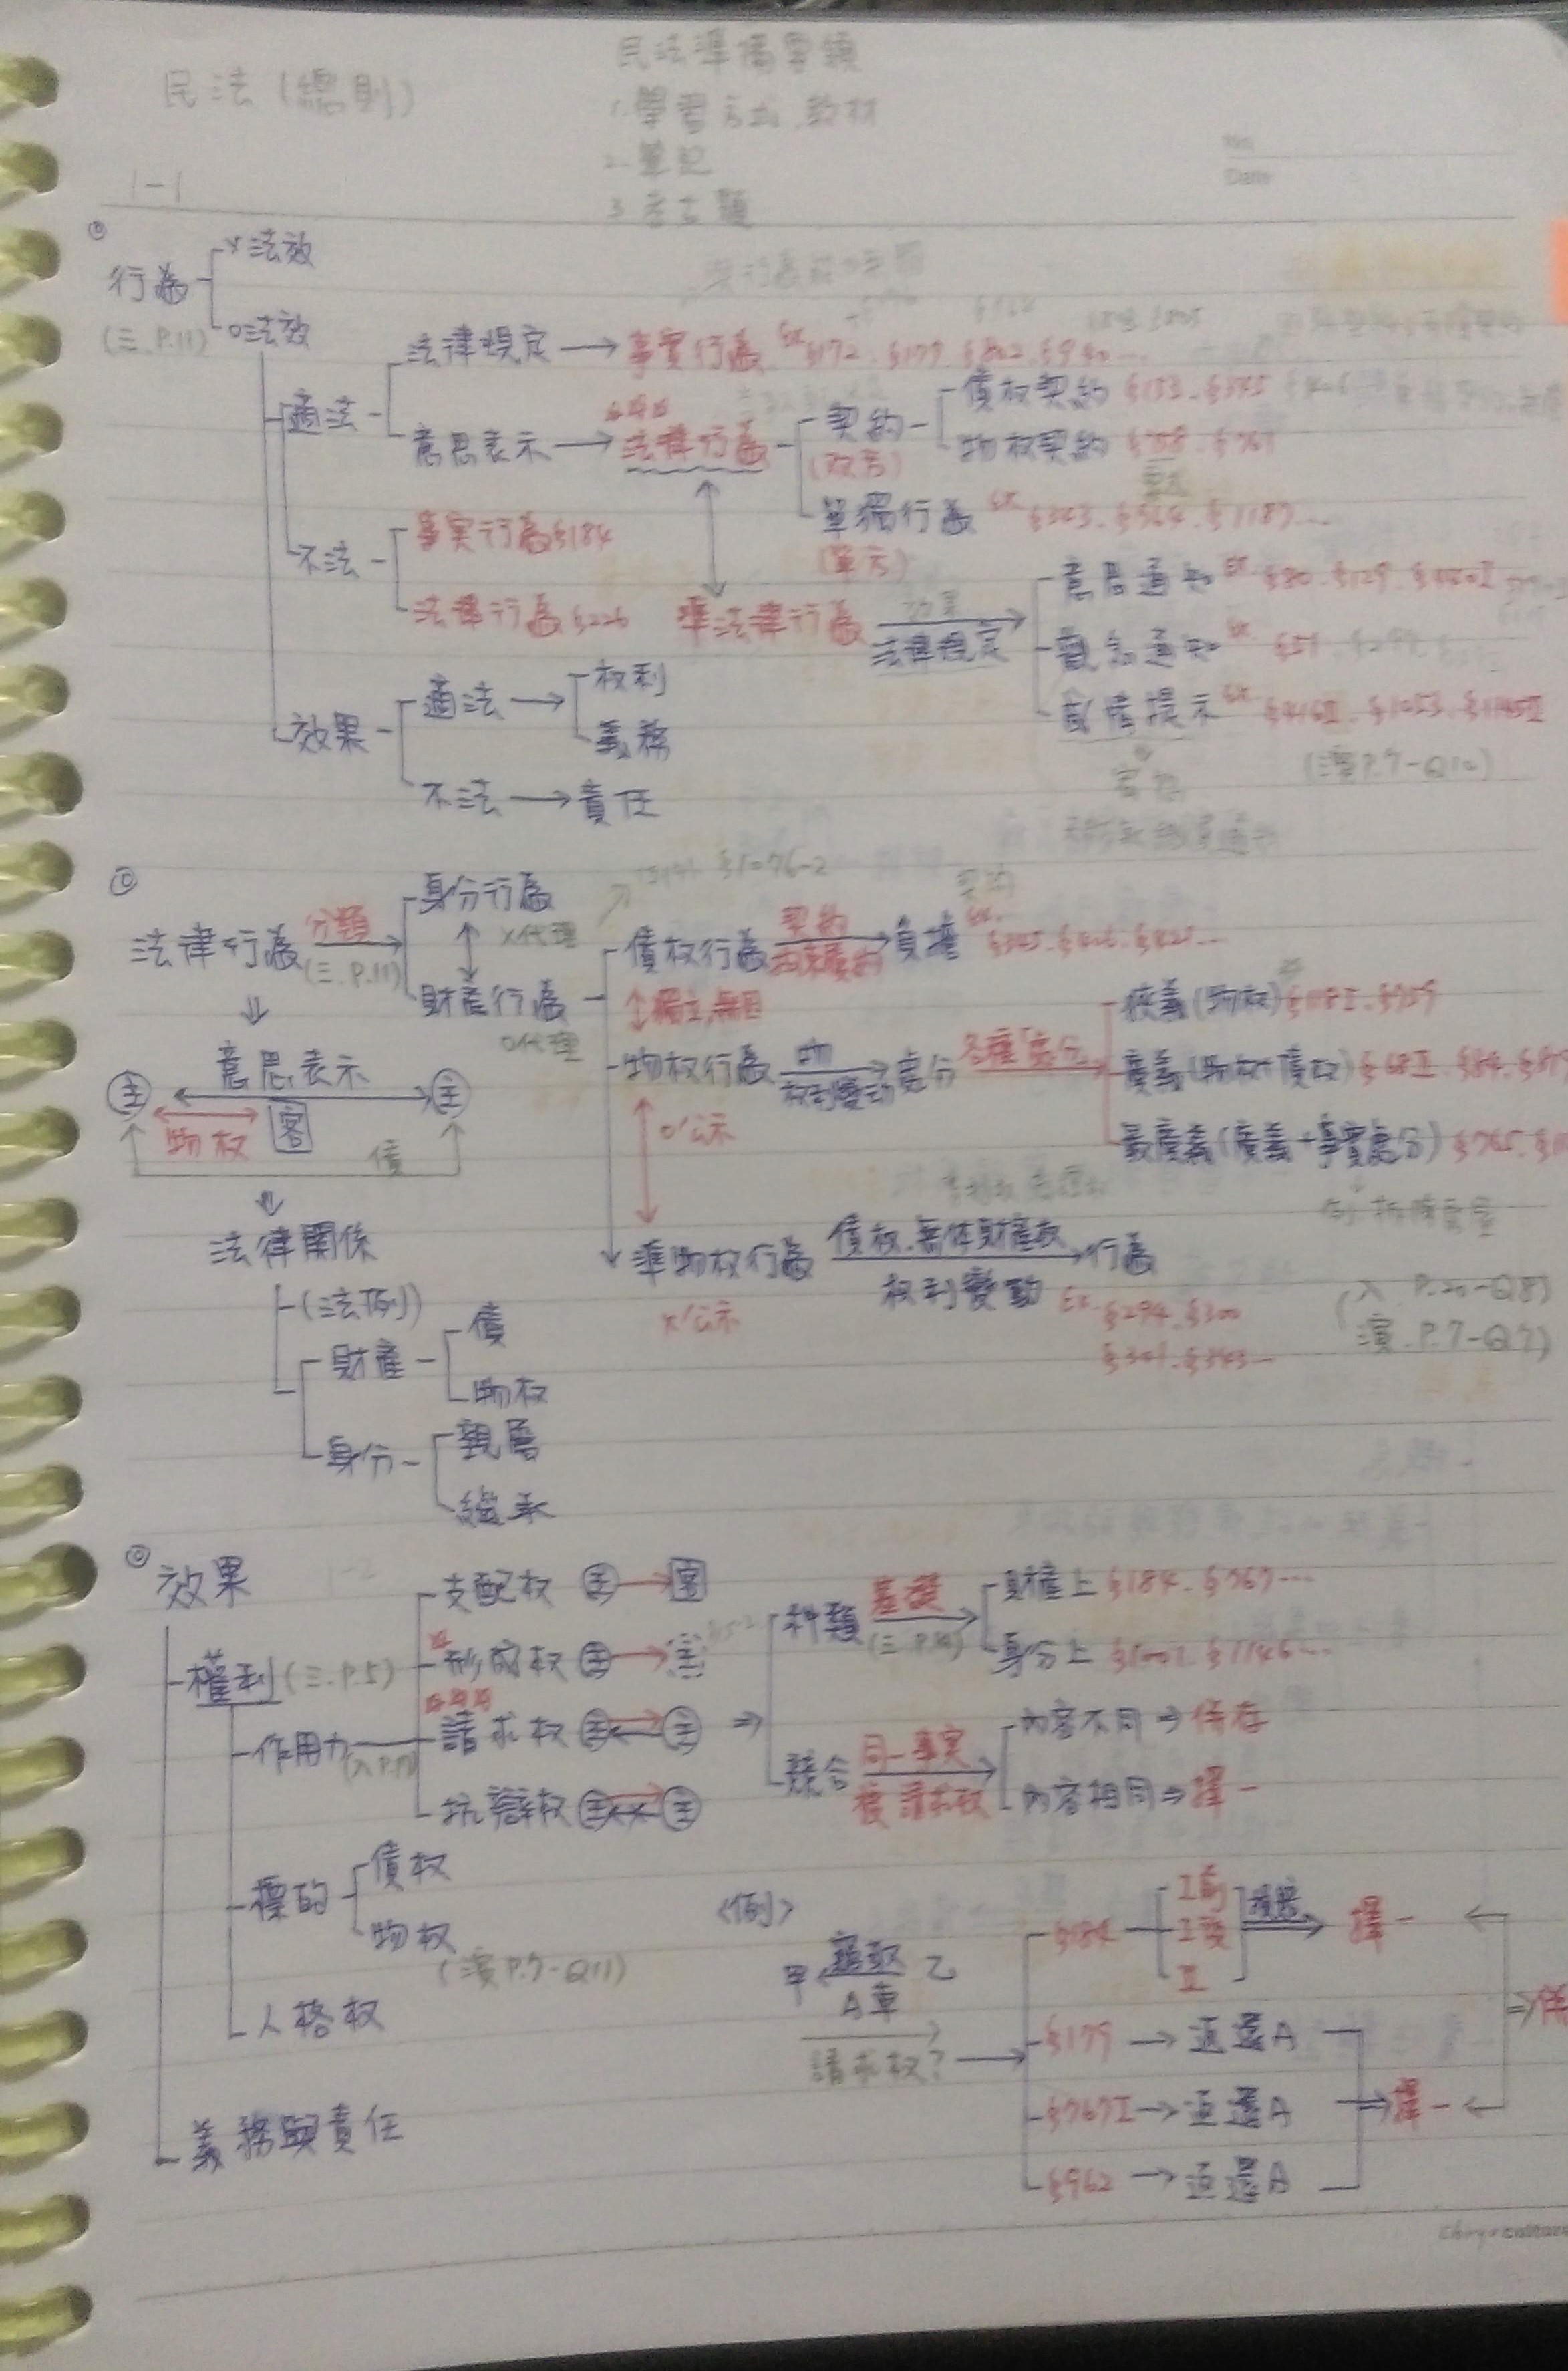 民法(總則)
民法準備
1.學習方式、教材
2.筆記
3.考古題
No.
Date
1-1
行為
(三.P.11)
x法效
o法效
適法
法律規定 → 事實行為 ex §172、§179、§802、§940...
意思表示 → 法律行為
契約
(双方)
債权契約 §153、§345
物权契約 §758、§761
單獨行為 ex
(單方)
不法
事実行為§184
法律行為§226
準法律行為
法律規定
意思通知 ex §80、§129
觀念通知 ex §51
感情表示 ex §416Ⅱ、§1053、§1145Ⅱ
(演P.7-Q10)
效果
適法 →
权利
義務
不法 → 責任
法律行為
分類
(三.P.11)
身分行為
x代理
財產行為
o代理
債权行為 契約 → 負擔 ex.
↑獨立,無因
物权行為 物 权利變動 → 處分
各種「處分」
狹義(物权) §118Ⅰ、§759
廣義(物权+債权) §68Ⅱ、§84
最廣義(廣義+事實處分) §765
o'公示
準物权行為 債权、無体財產权 → 行為
x'公示
权利變動 Ex. §294、§300
§301、§343...
(入 P.20-Q8)
(演.P.7-Q7)
意思表示
主 主
物权 客
債
法律關係
(法例)
財產
債
物权
身分
親屬
繼承
效果
1-2
權利 (三.P.5)
作用力
支配权 主 → 客
形成权 主 →
請求权 主 主
抗辯权 主 主
種類 基礎
財產上 §184、§767...
身分上 §1001、§1146...
競合 同一事実
複請求权
內容不同 ⇒ 併存
內容相同 ⇒ 擇一
標的
債权
物权
(演P.7-Q11)
人格权
義務與責任
<例>
甲 竊取 乙
A車
請求权?
§184
Ⅰ前
Ⅰ後
Ⅱ
擇一
§179 → 返還A
§767Ⅰ → 返還A
§962 → 返還A
擇一